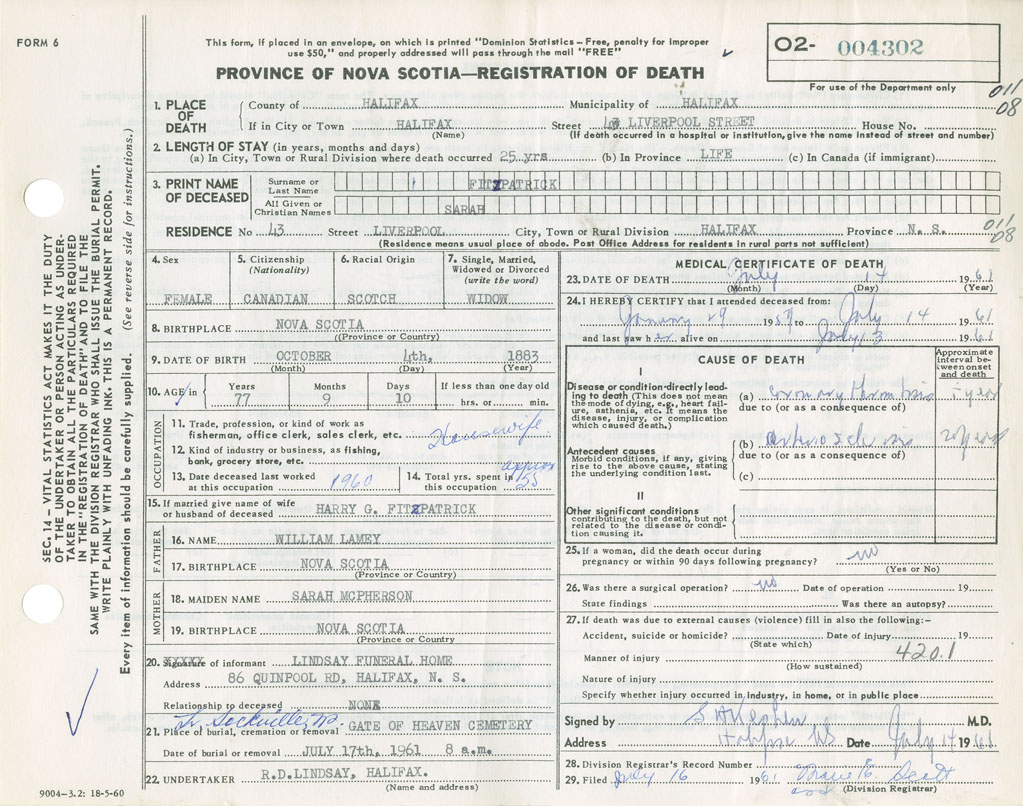 FORM 6
This form, if placed in an envelope, on which is printed "Dominion Statistics – Free, penalty for improper
use $50," and properly addressed will pass through the mail "FREE"
PROVINCE OF NOVA SCOTIA—REGISTRATION OF DEATH
02- 004302
For use of the Department only
011/08
1. PLACE OF DEATH County of HALIFAX Municipality of HALIFAX
If in City or Town HALIFAX (Name) Street 43 LIVERPOOL STREET House No.
(If death occurred in a hospital or institution, give the name instead of street and number)
2. LENGTH OF STAY (in years, months and days)
(a) In City, Town or Rural Division where death occurred 25 yrs (b) In Province LIFE (c) In Canada (if immigrant)
3. PRINT NAME OF DECEASED Surname or Last Name FITZPATRICK
All Given or Christian Names SARAH
RESIDENCE No 43 Street LIVERPOOL City, Town or Rural Division HALIFAX Province N. S.
011/08
(Residence means usual place of abode. Post Office Address for residents in rural parts not sufficient)
4. Sex FEMALE
5. Citizenship (Nationality) CANADIAN
6. Racial Origin SCOTCH
7. Single, Married, Widowed or Divorced (write the word) WIDOW
8. BIRTHPLACE NOVA SCOTIA
(Province or Country)
9. DATE OF BIRTH OCTOBER 4th, 1883
(Month) (Day) (Year)
10. AGE in Years 77 Months 9 Days 10 If less than one day old hrs. or min.
OCCUPATION
11. Trade, profession, or kind of work as
fisherman, office clerk, sales clerk, etc. Housewife
12. Kind of industry or business, as fishing,
bank, grocery store, etc.
13. Date deceased last worked at this occupation 1960
14. Total yrs. spent in this occupation approx 55
15. If married give name of wife or husband of deceased HARRY G. FITZPATRICK
FATHER
16. NAME WILLIAM LAMEY
17. BIRTHPLACE NOVA SCOTIA
(Province or Country)
MOTHER
18. MAIDEN NAME SARAH MCPHERSON
19. BIRTHPLACE NOVA SCOTIA
(Province or Country
20. Signature of informant LINDSAY FUNERAL HOME
Address 86 QUINPOOL RD, HALIFAX, N. S.
Relationship to deceased NONE
Lr. Sackville, N.S.
21. Place of burial, cremation or removal GATE OF HEAVEN CEMETERY
Date of burial or removal JULY 17th, 1961 8 a.m.
22. UNDERTAKER R.D.LINDSAY, HALIFAX.
(Name and address)
MEDICAL CERTIFICATE OF DEATH
23. DATE OF DEATH July 14 1961
(Month) (Day) (Year)
24. I HEREBY CERTIFY that I attended deceased from:
January 29 1959 to July 14 1961
and last saw her alive on July 13 1961
CAUSE OF DEATH
Approximate interval between onset and death
I
Disease or condition directly leading to death (This does not mean the mode of dying, e.g., heart failure, asthenia, etc. It means the disease, injury, or complication which caused death.)
(a) coronary thrombosis
due to (or as a consequence of)
Antecedent causes
Morbid conditions, if any, giving rise to the above cause, stating the underlying condition last.
(b) arteriosclerosis 20 years
due to (or as a consequence of)
(c)
II
Other significant conditions
contributing to the death, but not related to the disease or condition causing it.
25. If a woman, did the death occur during
pregnancy or within 90 days following pregnancy? no
(Yes or No)
26. Was there a surgical operation? no Date of operation 19
State findings Was there an autopsy?
27. If death was due to external causes (violence) fill in also the following:-
Accident, suicide or homicide? Date of injury 19
(State which)
Manner of injury 420.1
(How sustained)
Nature of injury
Specify whether injury occurred in industry, in home, or in public place
Signed by M.D.
Address Halifax NS Date July 14 1961
28. Division Registrar's Record Number
29. Filed July 16 1961
(Division Registrar)
SEC. 14 – VITAL STATISTICS ACT MAKES IT THE DUTY
OF THE UNDERTAKER OR PERSON ACTING AS UNDER-
TAKER TO OBTAIN ALL THE PARTICULARS REQUIRED
IN THE "REGISTRATION OF DEATH" AND TO FILE THE
SAME WITH THE DIVISION REGISTRAR WHO SHALL ISSUE THE BURIAL PERMIT.
WRITE PLAINLY WITH UNFADING INK. THIS IS A PERMANENT RECORD.
Every item of information should be carefully supplied. (See reverse side for instructions.)
9004–3.2: 18-5-60